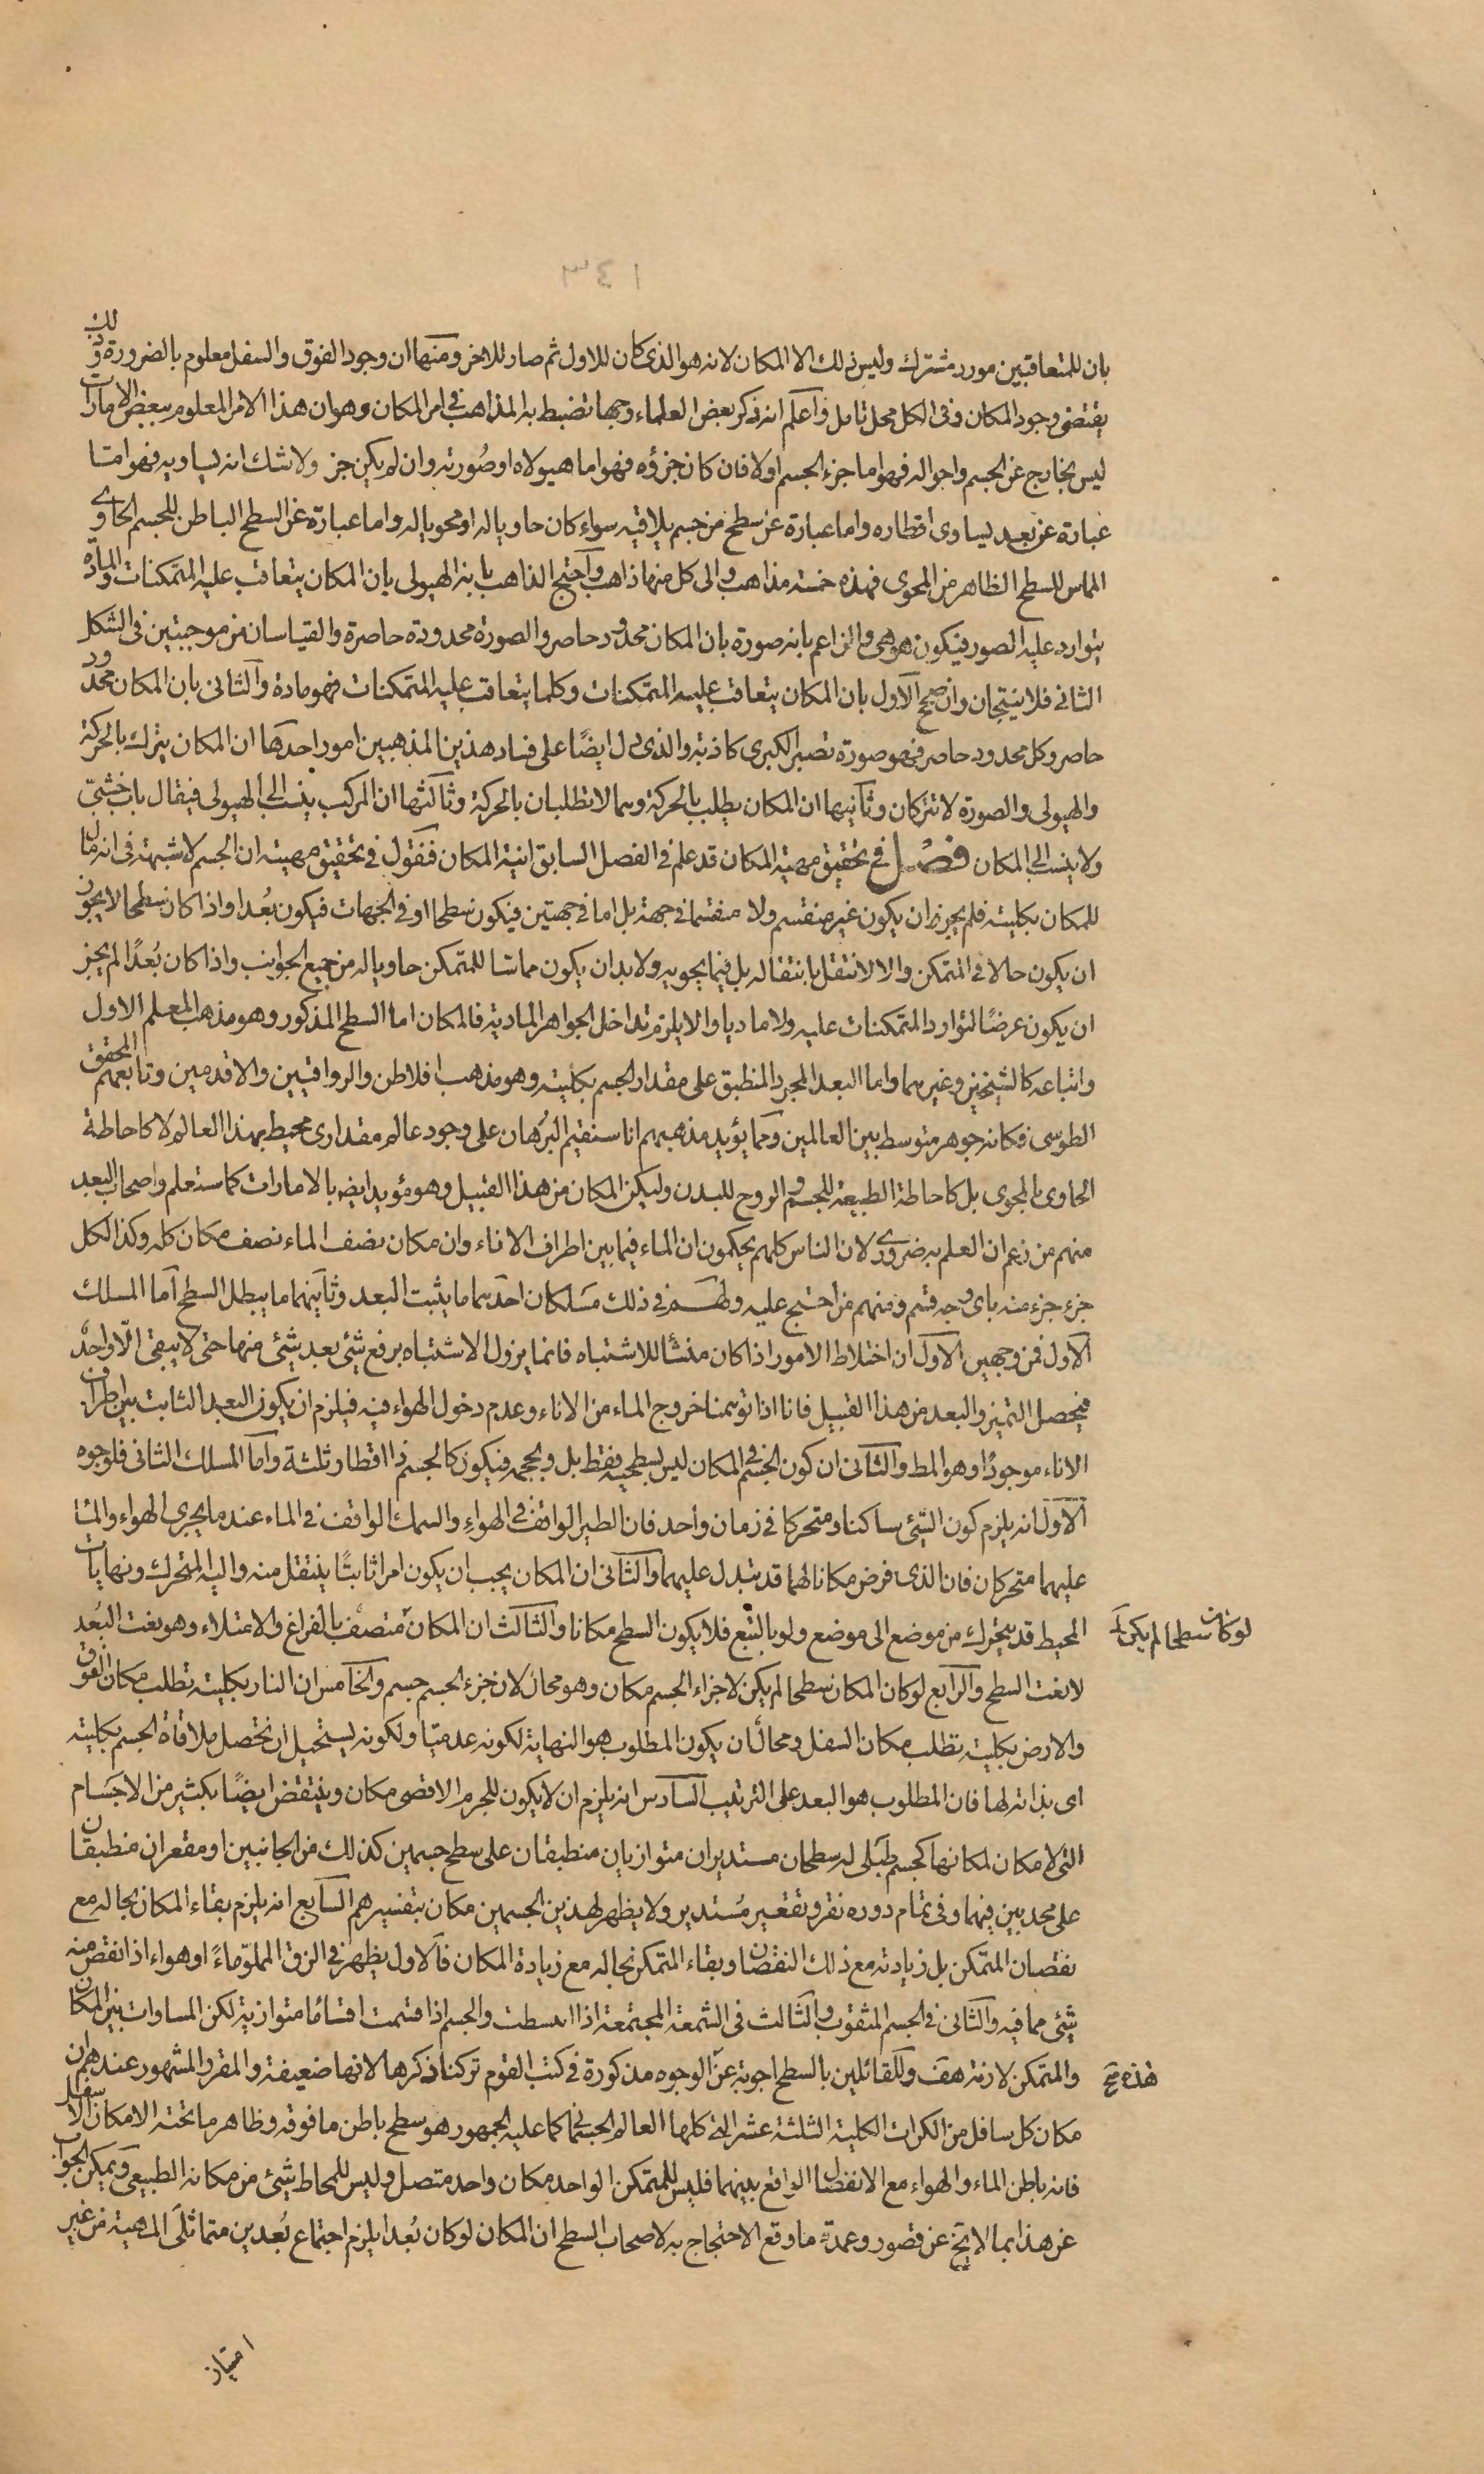 ٣٤١
بان للمتعاقبين مورد مشترك وليس ذلك الا المكان لانه هو الذى كان للاول ثم صار للاخر ومنها ان وجود الفوق والسفل معلوم بالضرورة وذلك
يقتضى وجود المكان وفى الكل محل تامل واعلم انه ذكر بعض العلماء وجها تضبط به المذاهب فى امر المكان وهو ان هذا الامر المعلوم ببعض الامارات
ليس بخارج عن الجسم واحواله فهو اما جزء الجسم اولا فان كان جزؤه فهو اما هيولاه او صورته وان لم يكن جز ولا شك انه يساويه فهو اما
عبارة عن بعد يساوى اقطاره واما عبارة عن سطح من جسم يلاقيه سواء كان حاويا له او محويا له واما عبارة عن السطح الباطن للجسم الحاوى
المماس للسطح الظاهر من المحوى فهذه خمسة مذاهب والى كل منها ذاهب واحتج الذاهب بانه الهيولى بان المكان يتعاقب عليه المتمكنات والمادة
يتوارد عليه الصور فيكون هو هى والزاعم بانه صورة بان المكان محدود حاصر والصورة محدودة حاصرة والقياسان من موجبتين فى الشكل
الثانى فلا ينتجان وان صحح الاول بان المكان يتعاقب عليه المتمكنات وكلما يتعاقب عليه المتمكنات فهو مادة والثانى بان المكان محدود
حاصر وكل محدود حاصر فهو صورة تصير الكبرى كاذبة والذى دل ايضا على فساد هذين المذهبين امور احدها ان المكان يترك بالحركة
والهيولى والصورة لا تتركان وثانيها ان المكان يطلب بالحركة وهما لا تطلبان بالحركة وثالثها ان المركب ينسب الى الهيولى فيقال باب خشبى
ولا ينسب الى المكان فصل فى تحقيق مهية المكان قد علم فى الفصل السابق انية المكان فنقول فى تحقيق مهيته ان الجسم لا شبهة فى انه مال
للمكان بكليته فلم يجز ان يكون غير منقسم ولا منقسما فى جهة بل اما فى جهتين فيكون سطحا او فى الجهات فيكون بعدا واذا كان سطحا لا يجوز
ان يكون حالا فى المتمكن والا لانتقل بانتقاله بل فيما يحويه ولا بد ان يكون مماسا للمتمكن حاويا له من جميع الجوانب واذا كان بعدا لم يجز
ان يكون عرضا لتوارد المتمكنات عليه ولا ماديا والا يلزم تداخل الجواهر المادية فالمكان اما السطح المذكور وهو مذهب المعلم الاول
واتباعه كالشيخين وغيرهما واما البعد المجرد المنطبق على مقدار الجسم بكليته وهو مذهب افلاطن والرواقيين والاقدمين وتابعهم المحقق
الطوسى فكانه جوهر متوسط بين العالمين ومما يؤيد مذهبهم انا سنقيم البرهان على وجود عالم مقدارى محيط بهذا العالم لا كاحاطة
الحاوى بالمحوى بل كاحاطة الطبيعة للجسم والروح للبدن وليكن المكان من هذا القبيل وهو مؤيد ايضا بالامارات كما ستعلم واصحاب البعد
منهم من زعم ان العلم به ضرورى لان الناس كلهم يحكمون ان الماء فيما بين اطراف الاناء وان مكان نصف الماء نصف مكان كله وكذا لكل
جزء جزء منه باى وجه قسم ومنهم من احتج عليه ولهم فى ذلك مسلكان احدهما ما يثبت البعد وثانيهما ما يبطل السطح اما المسلك
الاول فمن وجهين الاول ان اختلاط الامور اذا كان منشأ للاشتباه فانما يزول الاشتباه برفع شئى بعد شئى منها حتى لا يبقى الا واحد
فيحصل التميز والبعد من هذا القبيل فانا اذا توهمنا خروج الماء من الاناء وعدم دخول الهواء فيه فيلزم ان يكون البعد الثابت بين اطراف
الاناء موجودا وهو المط والثانى ان كون الجسم فى المكان ليس بسطحه فقط بل وبحجمه فيكون كالجسم ذا اقطار ثلثة واما المسلك الثانى فلوجوه
الاول انه يلزم كون الشئى ساكنا ومتحركا فى زمان واحد فان الطير الواقف فى الهواء والسمك الواقف فى الماء عند ما يجرى الهواء والماء
عليهما متحركان فان الذى فرض مكانا لهما قد تبدل عليهما والثانى ان المكان يجب ان يكون امرا ثابتا ينتقل منه واليه المتحرك ونهايات
المحيط قد يتحرك من موضع الى موضع ولو بالتبع فلا يكون السطح مكانا والثالث ان المكان متصف بالفراغ والامتلاء وهو نعت البعد
لوكان سطحا لم يكن
لا نعت السطح والرابع لو كان المكان سطحا لم يكن لاجزاء الجسم مكان وهو محال لان جزء الجسم جسم والخامس ان النار بكليته تطلب مكان الفوق
والارض بكليته تطلب مكان السفل ومحال ان يكون المطلوب هو النهاية لكونه عدميا ولكونه يستحيل ان تحصل ملاقاة الجسم بكليته
اى بذاته لها فان المطلوب هو البعد على الترتيب السادس انه يلزم ان لا يكون للجرم الاقصى مكان وينتقض ايضا بكثير من الاجسام
التى لا مكان لمكانها كجسم طبلى له سطحان مستديران متوازيان منطبقان على سطح جسمين كذلك من الجانبين او مقعران منطبقان
على محدبين فيهما وفى تمام دوره نقر وتقعير مستدير ولا يظهر لهذين الجسمين مكان بتفسيرهم السابع انه يلزم بقاء المكان بحاله مع
نقصان المتمكن بل زيادته مع ذلك النقصان وبقاء المتمكن بحاله مع زيادة المكان فالاول يظهر فى الزق المملو ماء او هواء اذا نقص منه
شئى مما فيه والثانى فى الجسم المثقوب والثالث فى الشمعة المجتمعة اذا انبسطت والجسم اذا قسمت اقساما متوازية لكن المساوات بين المكان
والمتمكن لازمة هف وللقائلين بالسطح اجوبة عن الوجوه مذكورة فى كتب القوم تركنا ذكرها لانها ضعيفة والمقرر المشهور عندهم ان
هذه صح
مكان كل سافل من الكرات الكلية الثلثة عشر التى كلها العالم الجسمانى كما عليه الجمهور هو سطح باطن ما فوقه وظاهر ما تحته الا مكان الاسفل
فانه باطن الماء والهواء مع الانفصال الواقع بينهما فليس للمتمكن الواحد مكان واحد متصل وليس للمحاط شئى من مكانه الطبيعى ويمكن الجواب
عن هذا بما لا يخ عن قصور وعمدة ما وقع الاحتجاج به لاصحاب السطح ان المكان لو كان بعدا يلزم اجتماع بعدين متماثلى المهية من غير
امتياز